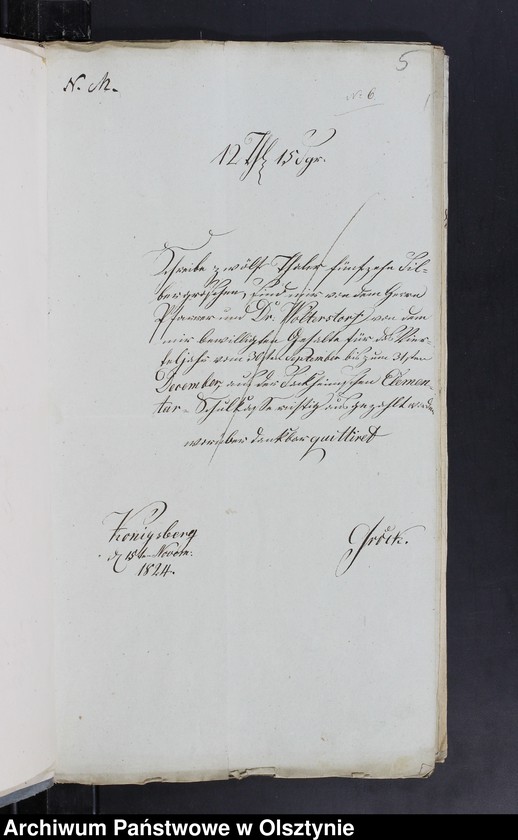 5
N. M.
No 6
12 Thl 15 Sgr.
Schreibe zwölf Thaler fünfzehn Sil-
bergroschen, sind mir von dem Herrn
Pfarrer und Dr. Wolterstorf von dem
mir bewilligten Gehalte für das Vier-
teljahr vom 30sten September bis zum 31sten
December, aus der Sackheimschen Elemen-
tar-Schulkasse richtig ausgezahlt worden
worüber dankbar quittiret
Königsberg
d 15te Novem.
1824.
Archiwum Państwowe w Olsztynie